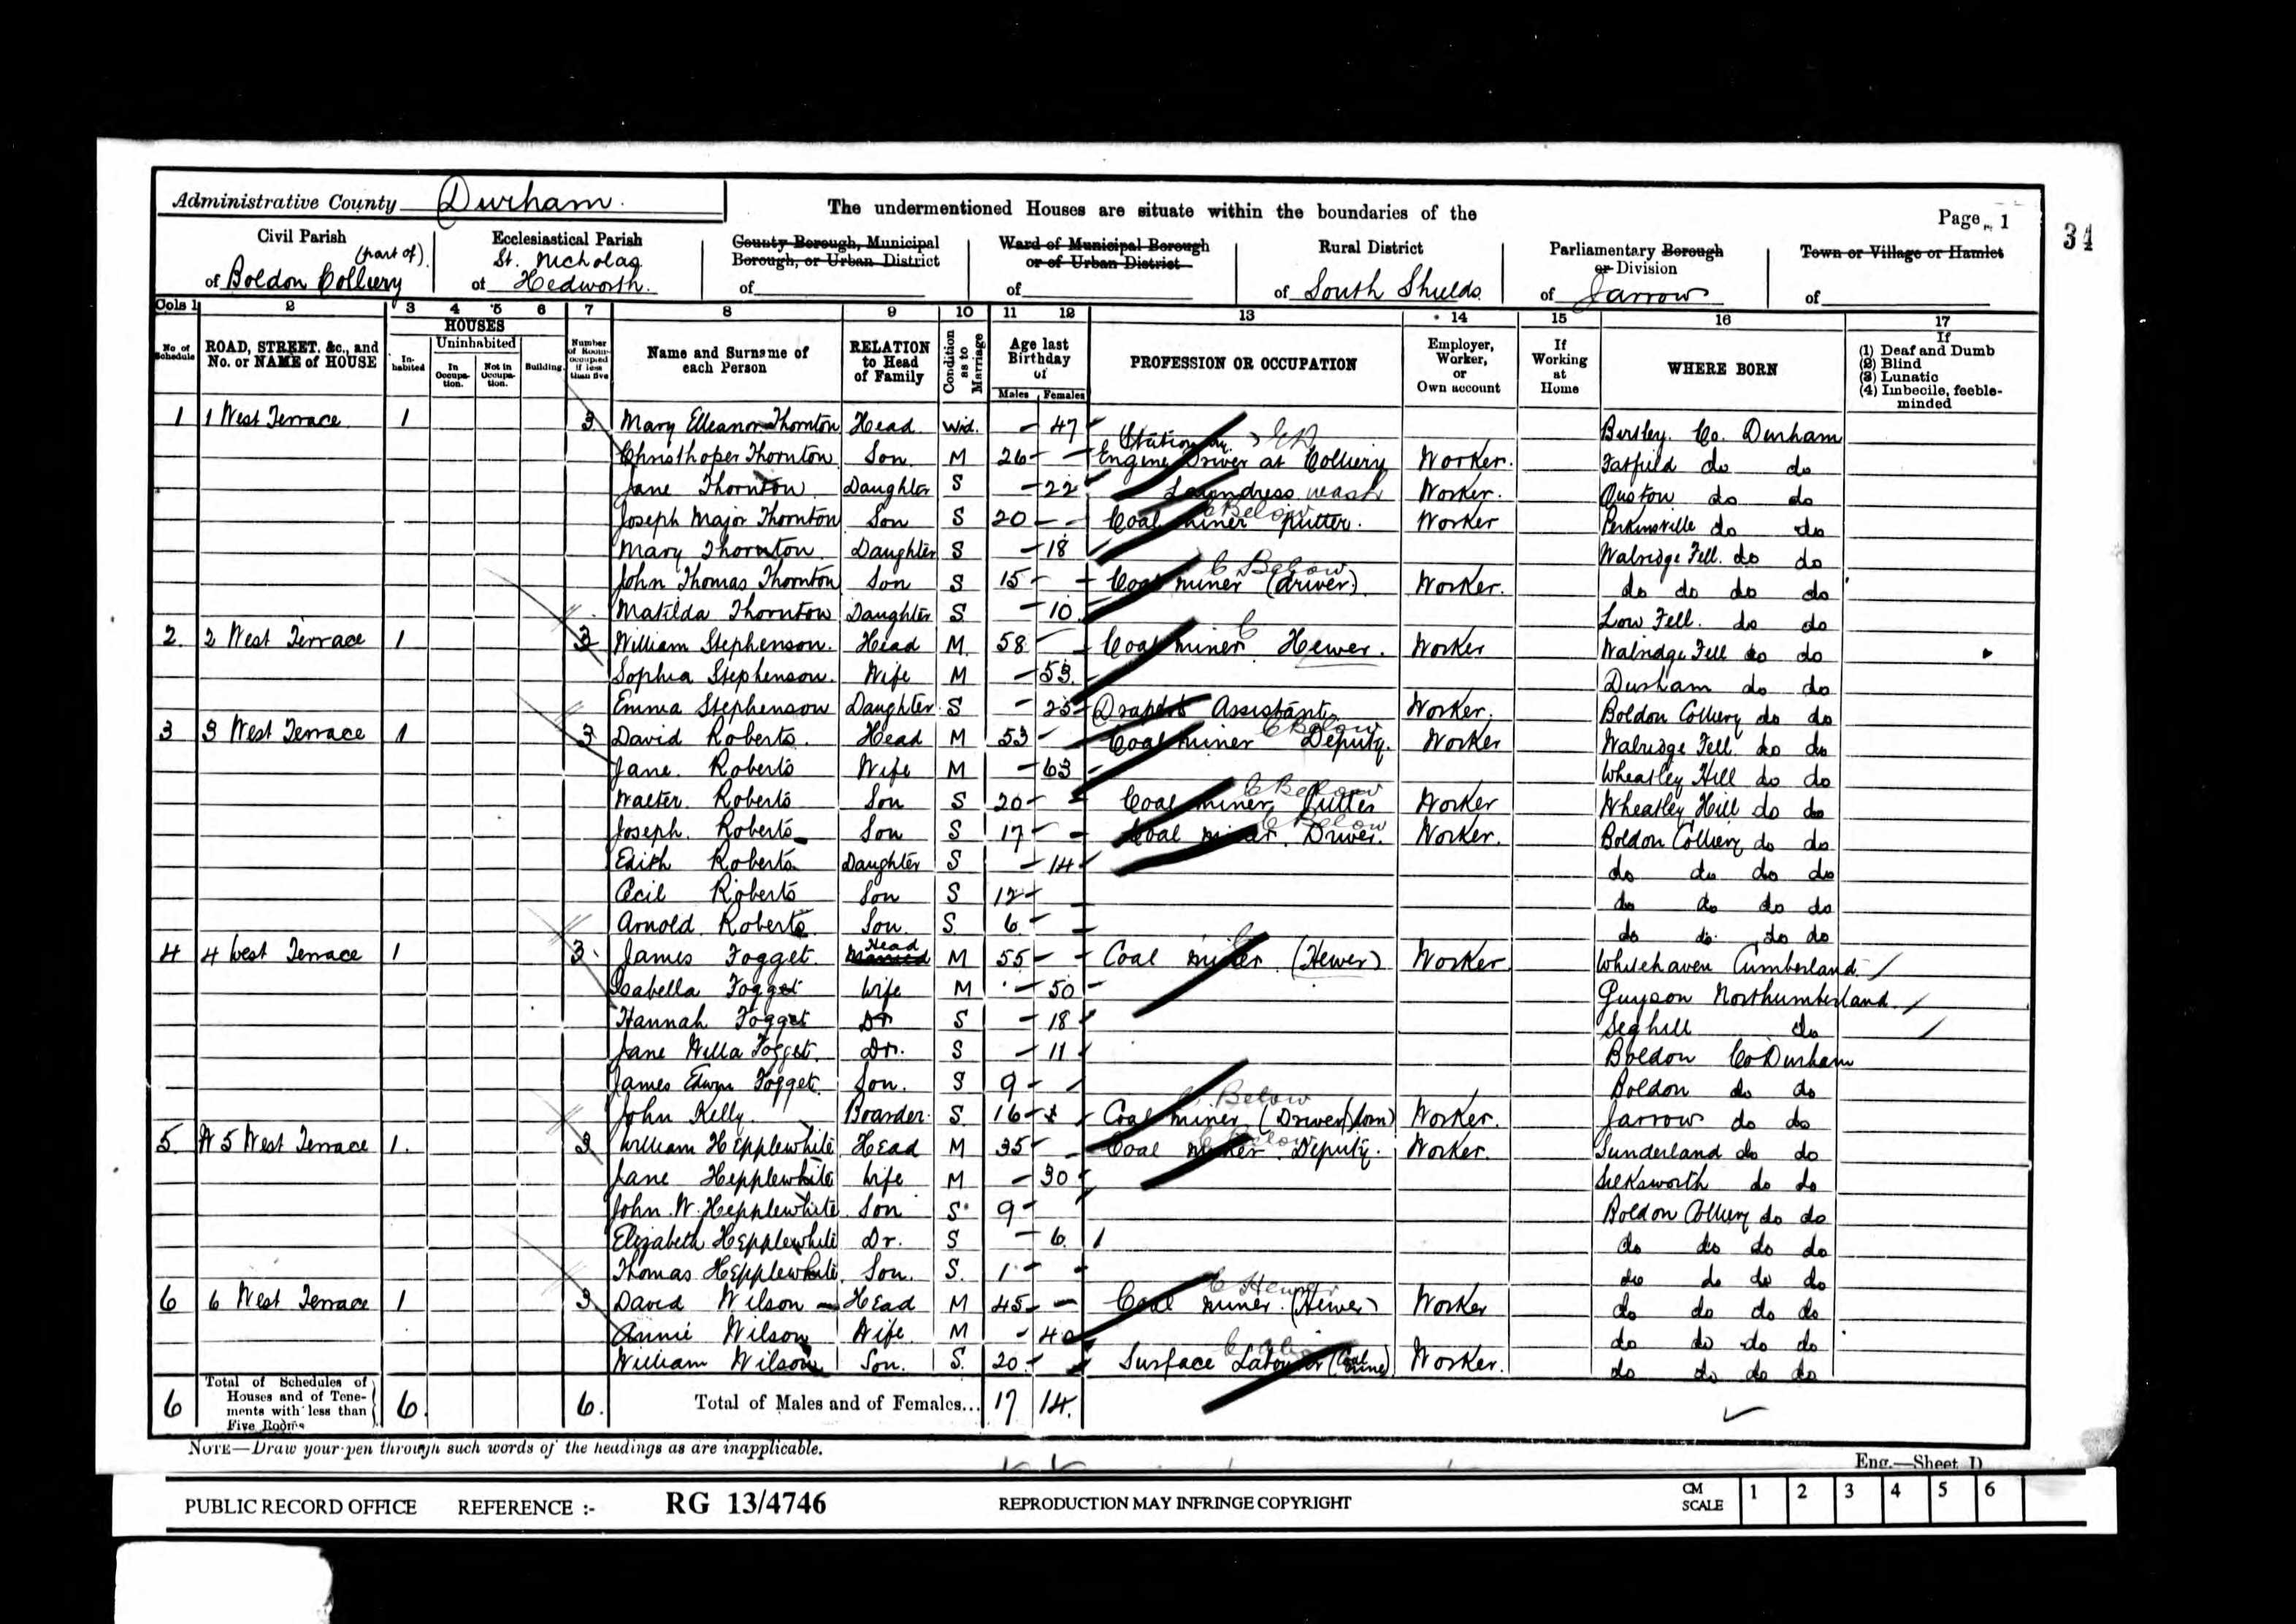 Administrative County Durham.
The undermentioned Houses are situate within the boundaries of the
Page 1
34
Civil Parish (part of) of Boldon Colliery
Ecclesiastical Parish St. Nicholas of Hedworth.
County Borough, Municipal Borough, or Urban District of
Ward of Municipal Borough or of Urban District of
Rural District of South Shields
Parliamentary Borough or Division of Jarrow
Town or Village or Hamlet of
Cols 1 2 3 4 5 6 7 8 9 10 11 12 13 14 15 16 17
No. of Schedule
ROAD, STREET, &c., and No. or NAME of HOUSE
HOUSES
Inhabited
Uninhabited
In Occupation.
Not in Occupation.
Building.
Number of Rooms occupied if less than five
Name and Surname of each Person
RELATION to Head of Family
Condition as to Marriage
Age last Birthday of
Males Females
PROFESSION OR OCCUPATION
Employer, Worker, or Own account
If Working at Home
WHERE BORN
If
(1) Deaf and Dumb
(2) Blind
(3) Lunatic
(4) Imbecile, feeble-minded
1 1 West Terrace 1 3 Mary Elleanor Thornton Head Wid. - 47 Birtley. Co. Durham
Christhoper Thornton Son. M 26 - Stationary Engine Driver at Colliery Worker. Fatfield do do
Jane Thornton Daughter S - 22 Laundress wash Worker. Ouston do do
Joseph Major Thornton Son S 20 - Coal miner putter. C Below Worker Perkinsville do do
Mary Thornton Daughter S - 18 Walridge Fell. do do
John Thomas Thornton Son S 15 - Coal miner (driver). C Below Worker. do do do do
Matilda Thornton Daughter S - 10 Low Fell. do do
2. 2 West Terrace 1 3 William Stephenson. Head M. 58 - Coal miner Hewer. C Worker Walridge Fell do do
Sophia Stephenson. Wife M - 53. Durham do do
Emma Stephenson Daughter. S - 25 Drapers Assistant Worker. Boldon Colliery do do
3 3 West Terrace 1 3 David Roberts. Head M 53 - Coal miner Deputy. C Below Worker Walridge Fell. do do
Jane. Roberts Wife M - 63 Wheatley Hill do do
Walter. Roberts Son S 20 - Coal miner Putter C Below Worker Wheatley Hill do do
Joseph. Roberts Son S 17 - Coal miner. Driver. C Below Worker. Boldon Colliery do do
Edith Roberts Daughter S - 14 do do do do
Cecil Roberts Son S 12 - do do do do
Arnold. Roberts Son. S. 6 - do do do do
4 4 West Terrace 1 3. James Fogget. Married Head M 55 - Coal miner (Hewer) C Worker Whitehaven Cumberland
Isabella Fogget Wife M - 50 Guyson Northumberland.
Hannah Fogget Dr S - 18 Seghill do
Jane Willa Fogget. Dr. S - 11 Boldon Co Durham
James Edwn Fogget. Son. S 9 - Boldon do do
John Kelly. Boarder. S 16 - Coal miner (Driver) C. Below Worker. Jarrow do do
5. N 5 West Terrace 1. 3 William Hepplewhite Head M 35 - Coal miner. Deputy. C Below Worker. Sunderland do do
Jane Hepplewhite Wife M - 30 Silksworth do do
John. W. Hepplewhite Son S 9 - Boldon Colliery do do
Elizabeth Hepplewhite Dr. S - 6. do do do do
Thomas Hepplewhite. Son. S. 1 - do do do do
6 6 West Terrace 1 3 David Wilson Head M 45 - Coal miner. (Hewer) C Hewer Worker do do do do
Annie Wilson Wife. M - 40 do do do do
William Wilson Son. S. 20 - Surface Labourer (Coal mine) Worker. do do do do
6 Total of Schedules of Houses and of Tenements with less than Five Rooms 6. 6. Total of Males and of Females... 17 14.
NOTE—Draw your pen through such words of the headings as are inapplicable.
Eng.—Sheet D
PUBLIC RECORD OFFICE REFERENCE :- RG 13/4746 REPRODUCTION MAY INFRINGE COPYRIGHT CM SCALE 1 2 3 4 5 6